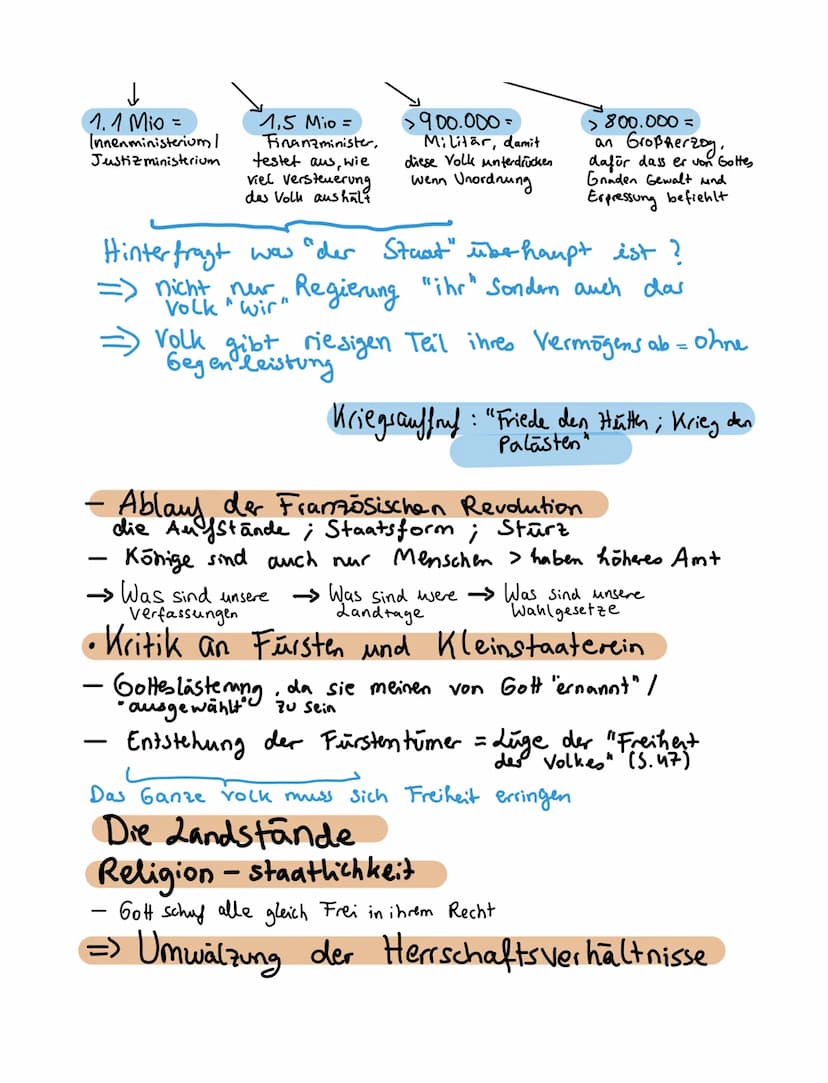 1.1 Mio =
Innenministerium /
Justizministerium
1,5 Mio =
Finanzminister,
testet aus, wie
viel Versteuerung
das Volk aushält
> 900.000 =
Militär, damit
diese Volk unterdrücken
wenn Unordnung
> 800.000 =
an Großherzog,
dafür dass er von Gottes
Gnaden Gewalt und
Erpressung befiehlt
Hinterfragt was "der Staat" überhaupt ist ?
=> nicht nur Regierung "ihr" sondern auch das
Volk "wir"
=> Volk gibt riesigen Teil ihres Vermögens ab = ohne
Gegenleistung
Kriegsaufruf : "Friede den Hütten ; Krieg den
Palästen"
- Ablauf der Französischen Revolution
die Aufstände ; Staatsform ; Sturz
- Könige sind auch nur Menschen > haben höheres Amt
→ Was sind unsere → Was sind were → Was sind unsere
Verfassungen Landtage Wahlgesetze
• Kritik an Fürsten und Kleinstaaterein
- Gotteslästerung, da sie meinen von Gott "ernannt" /
"ausgewählt" zu sein
- Entstehung der Fürstentümer = Lüge der "Freiheit
des Volkes" (S.47)
Das Ganze Volk muss sich Freiheit erringen
Die Landstände
Religion - staatlichkeit
- Gott schuf alle gleich Frei in ihrem Recht
=> Umwälzung der Herrschaftsverhältnisse